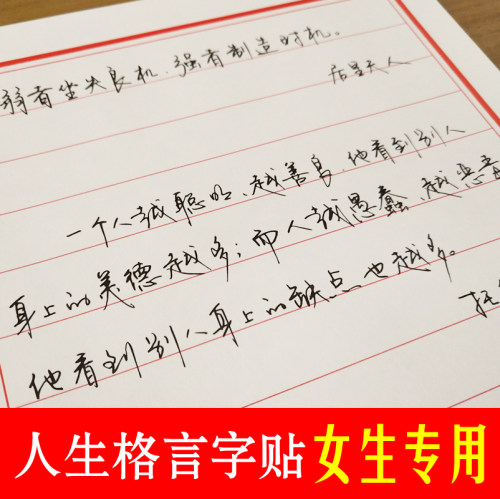 弱者坐失良机，强者制造时机。
居里夫人
一个人越聪明、越善良，他看到别人
身上的美德越多；而人越愚蠢、越恶毒
他看到别人身上的缺点也越多。
托
人生格言字贴女生专用